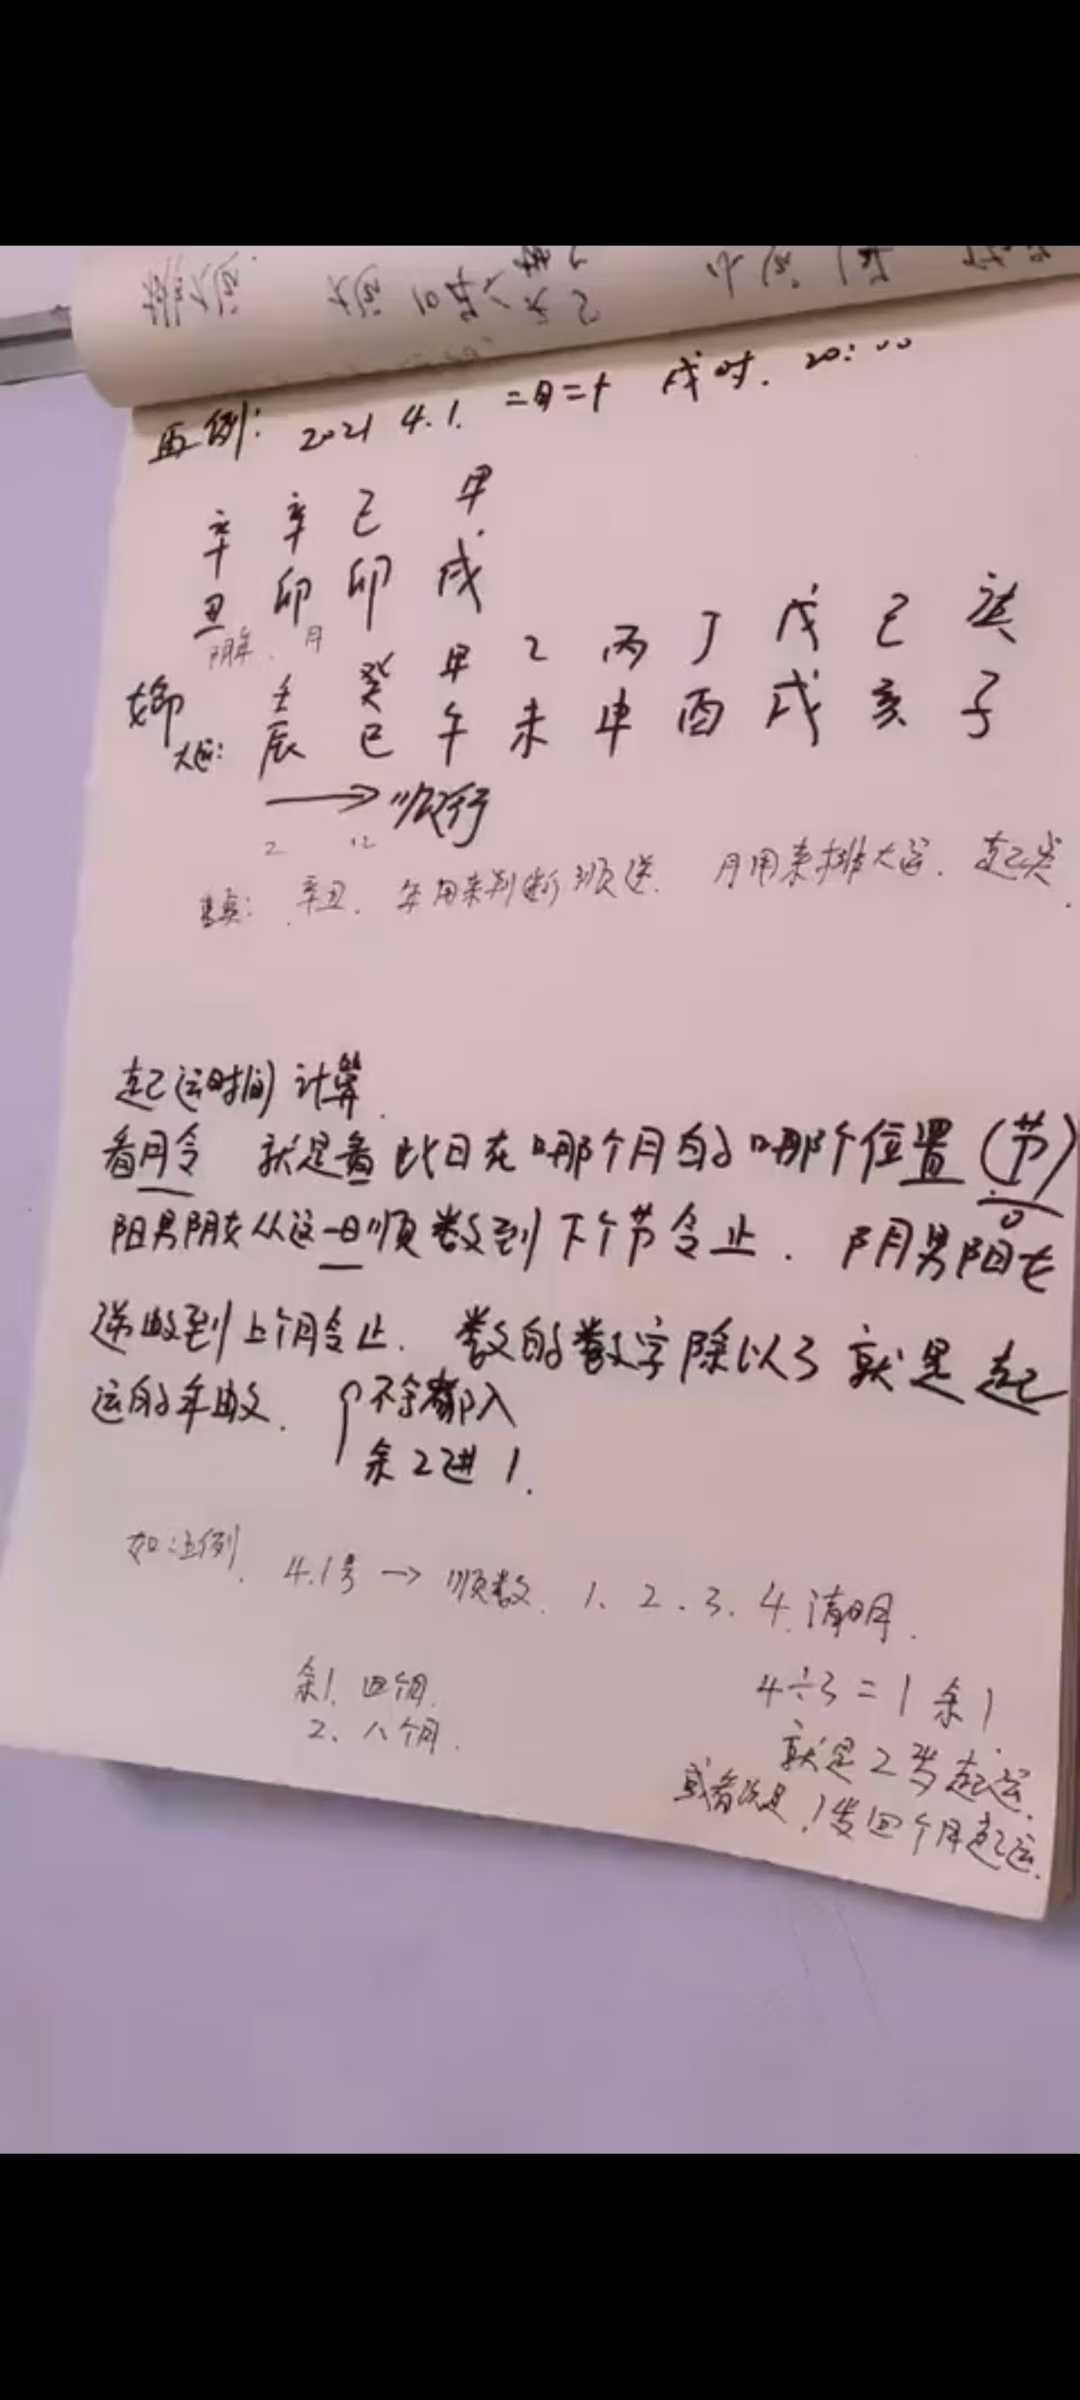 再例: 2021 4.1. 二月二十 戌时. 20:00
辛 辛 己 甲
丑 卯 卯 戌
阴年. 月
壬 癸 甲 乙 丙 丁 戊 己 庚
大运: 辰 巳 午 未 申 酉 戌 亥 子
→顺行
2 12
辛丑. 年用来判断顺逆. 月用来排大运. 起
起运时间计算.
看月令 就是看此日在哪个月的哪个位置(节)
阳男阴女从这一日顺数到下个节令止. 阴男阳女
逆数到上个月令止. 数的数字除以3就是起
运的年数. 不余都入
余2进1.
如 例. 4.1号 → 顺数. 1、2、3、4.清明.
余1. 四个月.
2、八个月.
4÷3=1余1
就是2岁起运.
或者说是.1岁四个月起运.